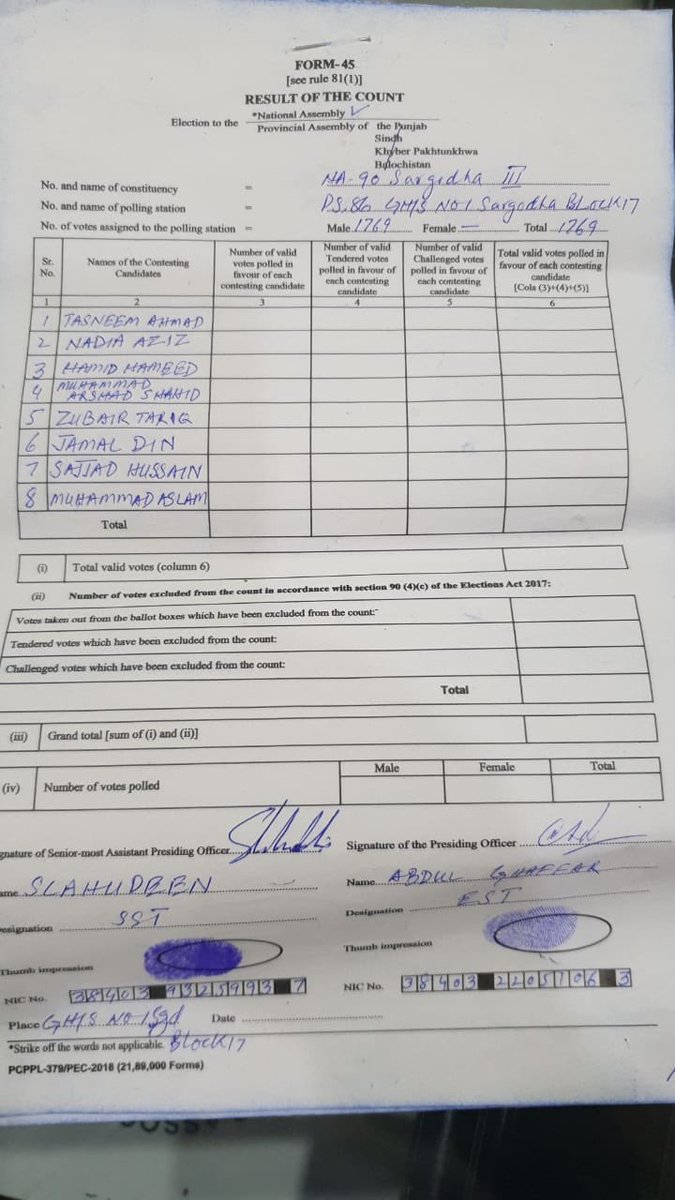 FORM-45
[see rule 81(1)]
RESULT OF THE COUNT
Election to the *National Assembly ✓
Provincial Assembly of the Punjab
Sindh
Khyber Pakhtunkhwa
Balochistan
No. and name of constituency = NA-90 Sargodha III
No. and name of polling station = PS.86 GHS NO 1 Sargodha BLOCK 17
No. of votes assigned to the polling station = Male 1769 Female — Total 1769
Sr. No. Names of the Contesting Candidates Number of valid votes polled in favour of each contesting candidate Number of valid Tendered votes polled in favour of each contesting candidate Number of valid Challenged votes polled in favour of each contesting candidate Total valid votes polled in favour of each contesting candidate [Cols (3)+(4)+(5)]
1 2 3 4 5 6
1 TASNEEM AHMAD
2 NADIA AZIZ
3 HAMID HAMEED
4 MUHAMMAD ARSHAD SHAHID
5 ZUBAIR TARIQ
6 JAMAL DIN
7 SAJJAD HUSSAIN
8 MUHAMMAD ASLAM
Total
(i) Total valid votes (column 6)
(ii) Number of votes excluded from the count in accordance with section 90 (4)(c) of the Elections Act 2017:
Votes taken out from the ballot boxes which have been excluded from the count:
Tendered votes which have been excluded from the count:
Challenged votes which have been excluded from the count:
Total
(iii) Grand total [sum of (i) and (ii)]
Male Female Total
(iv) Number of votes polled
gnature of Senior-most Assistant Presiding Officer Signature of the Presiding Officer
ame SLAHUDEEN Name ABDUL GHAFFAR
esignation SST Designation EST
Thumb impression Thumb impression
NIC No. 38403 9325993 7 NIC No. 38403 2205706 3
Place GHS NO 1 Sgd Date
*Strike off the words not applicable. Block 17
PCPPL-379/PEC-2018 (21,89,000 Forms)